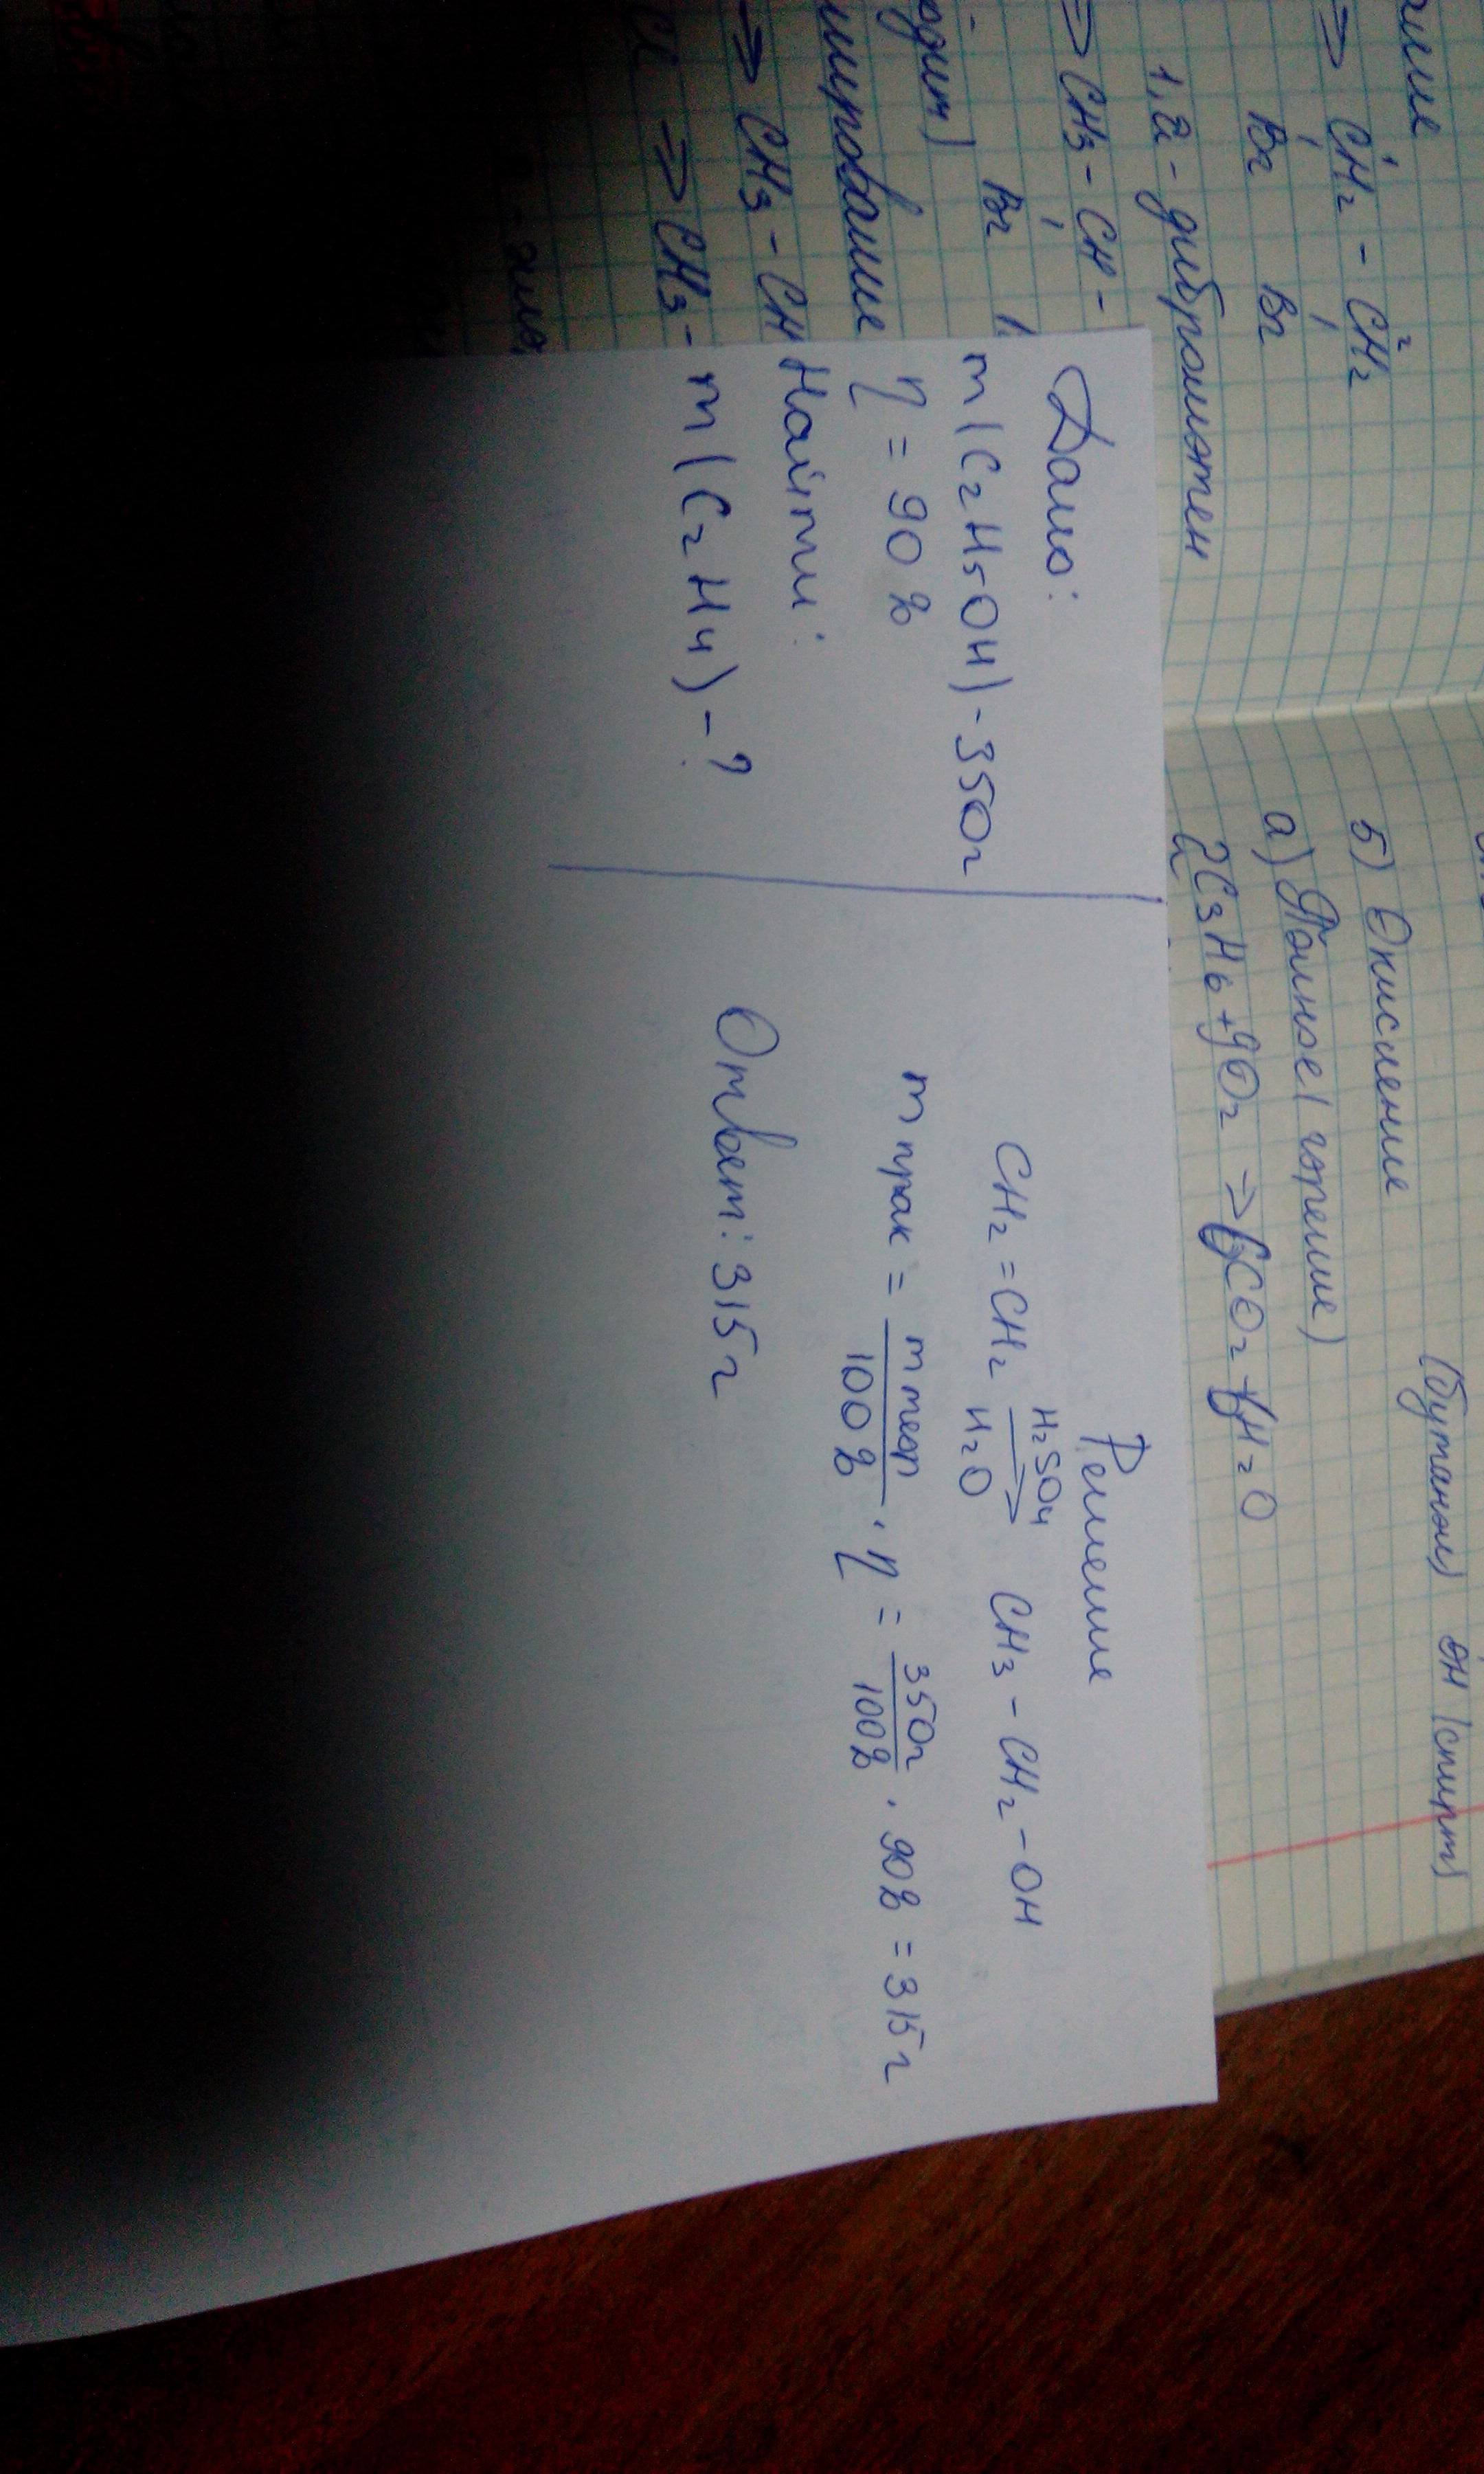 CH₂ - CH₂
Br Br
1,2 - дибромэтен
⇒ CH₃ - CH -
Br
→ CH₃ - CH
⇒ CH₃ -
(бутанол) OH (спирт)
5) Окисление
а) Полное (горение)
2C₃H₆ + 9O₂ ⇒ 6CO₂ + 6H₂O
Дано:
m (C₂H₅OH) - 350г
η = 90%
Найти:
m (C₂H₄) - ?
Решение
CH₂ = CH₂ H₂SO₄ ⟶ H₂O CH₃ - CH₂ - OH
m прак = m теор / 100% · η = 350г / 100% · 90% = 315г
Ответ: 315г